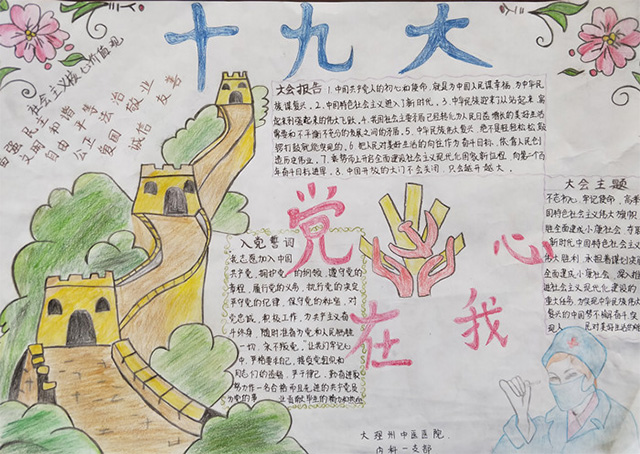 十九大
社会主义核心价值观
富强 民主
文明 和谐
自由 平等
公正 法治
爱国 敬业
诚信 友善
大会报告
1.中国共产党人的初心和使命,就是为中国人民谋幸福,为中华民
族谋复兴。2.中国特色社会主义进入了新时代。3.中华民族迎来了从站起来、富
起来到强起来的伟大飞跃。4.我国社会主要矛盾已经转化为人民日益增长的美好生活
需要和不平衡不充分的发展之间的矛盾。5.中华民族伟大复兴,绝不是轻轻松松、敲
锣打鼓就能实现的。6.把人民对美好生活的向往作为奋斗目标,依靠人民创
造历史伟业。7.
新征程,向第二个百
年奋斗目标进军。8.中国开放的大门不会关闭,只会越开越大。
大会主题
不忘初心,牢记使命,高举
国特色社会主义伟大旗帜
胜全面建成小康社会,夺取
新时代中国特色社会主义
伟大胜利,
全面建成小康社会、
进社会主义现代化建设的
重大任务,为实现中华民族伟大
复兴的中国梦不懈奋斗,实
现人
民对美好生活的
入党誓词
我志愿加入中国
共产党,拥护党的纲领,遵守党的
章程,履行党员义务,执行党的决定,
严守党的纪律,保守党的秘密,对
党忠诚,积极工作,为共产主义奋
斗终身,随时准备为党和人民牺牲
一切,永不叛党。
党在我心
大理州中医医院
内科一支部